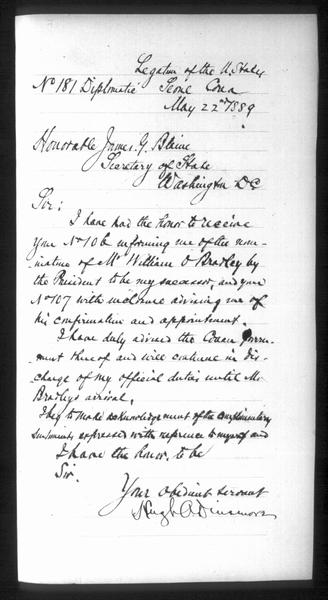 Legation of the U. States
No 181 Diplomatic Seoul Corea
May 22nd 1889
Honorable James. G. Blaine
Secretary of State
Washington D C
Sir:
I have had the honor to receive
your No 106 informing me of the nom-
ination of Mr William O Bradley by
the President to be my successor, and your
No 107 with inclosure advising me of
his confirmation and appointment.
I have duly advised the Corean Govern-
ment thereof and will continue in dis-
charge of my official duties until Mr
Bradley's arrival.
I beg to make acknowledgement of the complimentary
sentiments expressed with reference to myself and
I have the honor, to be
Sir.
Your obedient servant
Hugh A Dinsmore